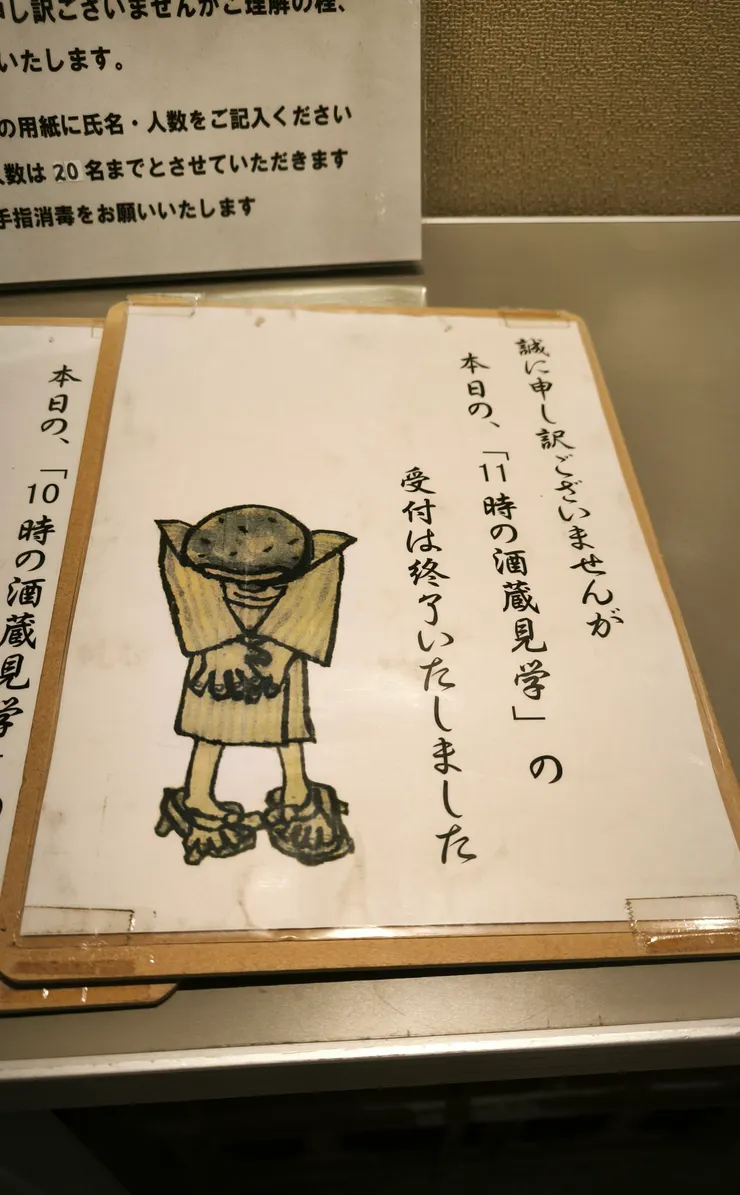 し訳ございませんがご理解の程、
いたします。
の用紙に氏名・人数をご記入ください
人数は20名までとさせていただきます
手指消毒をお願いいたします
誠に申し訳ございませんが
本日の、「11時の酒蔵見学」の
受付は終了いたしました
本日の、「10時の酒蔵見学